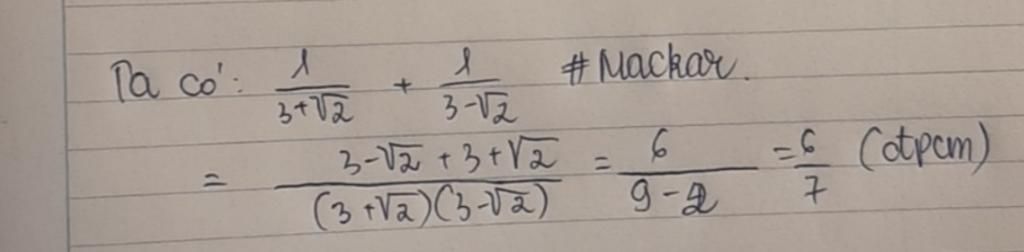 Ta có: \frac{1}{3+\sqrt{2}} + \frac{1}{3-\sqrt{2}} #Mackar.
= \frac{3-\sqrt{2}+3+\sqrt{2}}{(3+\sqrt{2})(3-\sqrt{2})} = \frac{6}{9-2} = \frac{6}{7} (đpcm)